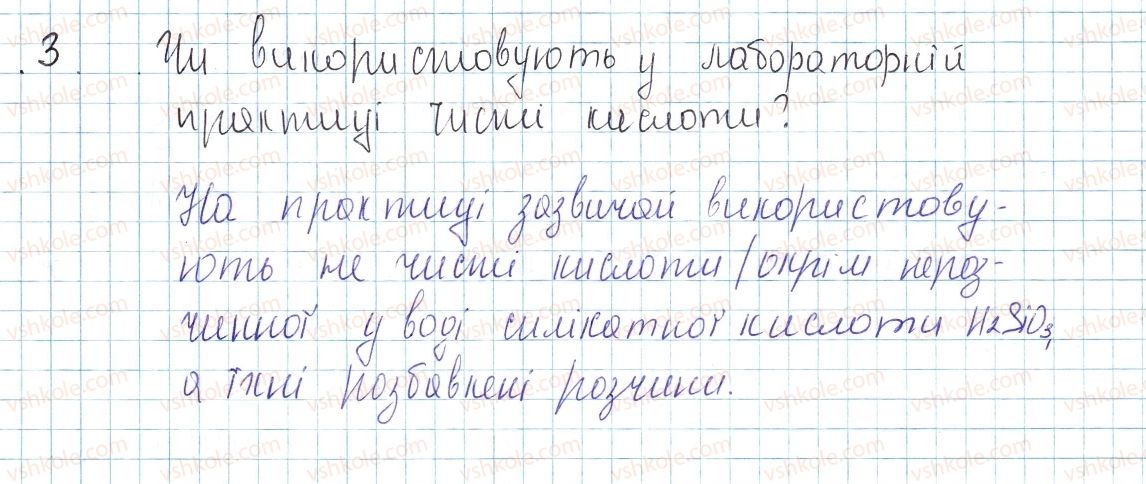 3. Чи використовують у лабораторній
практиці чисті кислоти?
На практиці зазвичай використову-
ють не чисті кислоти /окрім нероз-
чинної у воді силікатної кислоти H2SiO3,
а їхні розбавнені розчини.